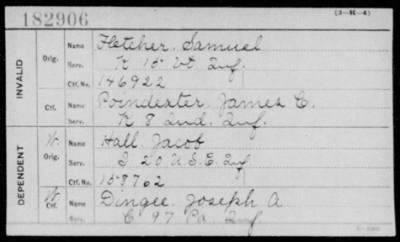 182906
(3-1K-4)
INVALID
Orig. Name Fletcher, Samuel
Serv. K 15 Vt. Inf.
Ctf. No. 146922
Ctf. Name Poindexter, James C.
Serv. K 8 Ind. Inf.
DEPENDENT
W. Orig. Name Hall, Jacob
Serv. I 20 U.S.C. Inf
Ctf. No. 158762
W. Ctf. Name Dingee, Joseph A
Serv. C 97 Pa. Inf